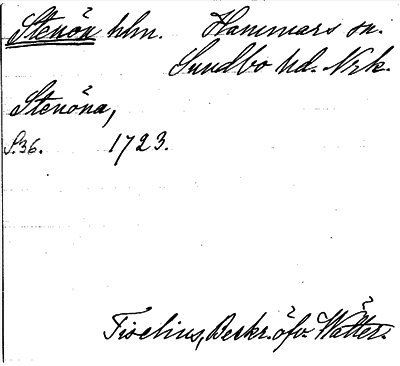 Stenön hlm. Hammars sn.
Sundbo hd. Nrk.
Stenöna,
S. 36. 1723.
Tiselius, Beskr. öfv. Wätter.